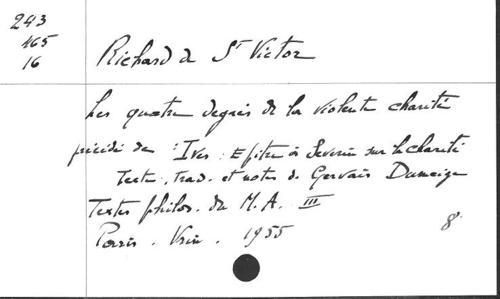 243
465
16
Richard de St Victor
Les quatre degrés de la violente charité
précédé de : Ives : Epitre à Severin sur la charité
Texte, trad. et notes de Gervais Dumeige
Textes philos. du M.A. III
Paris. Vrin. 1955
8°